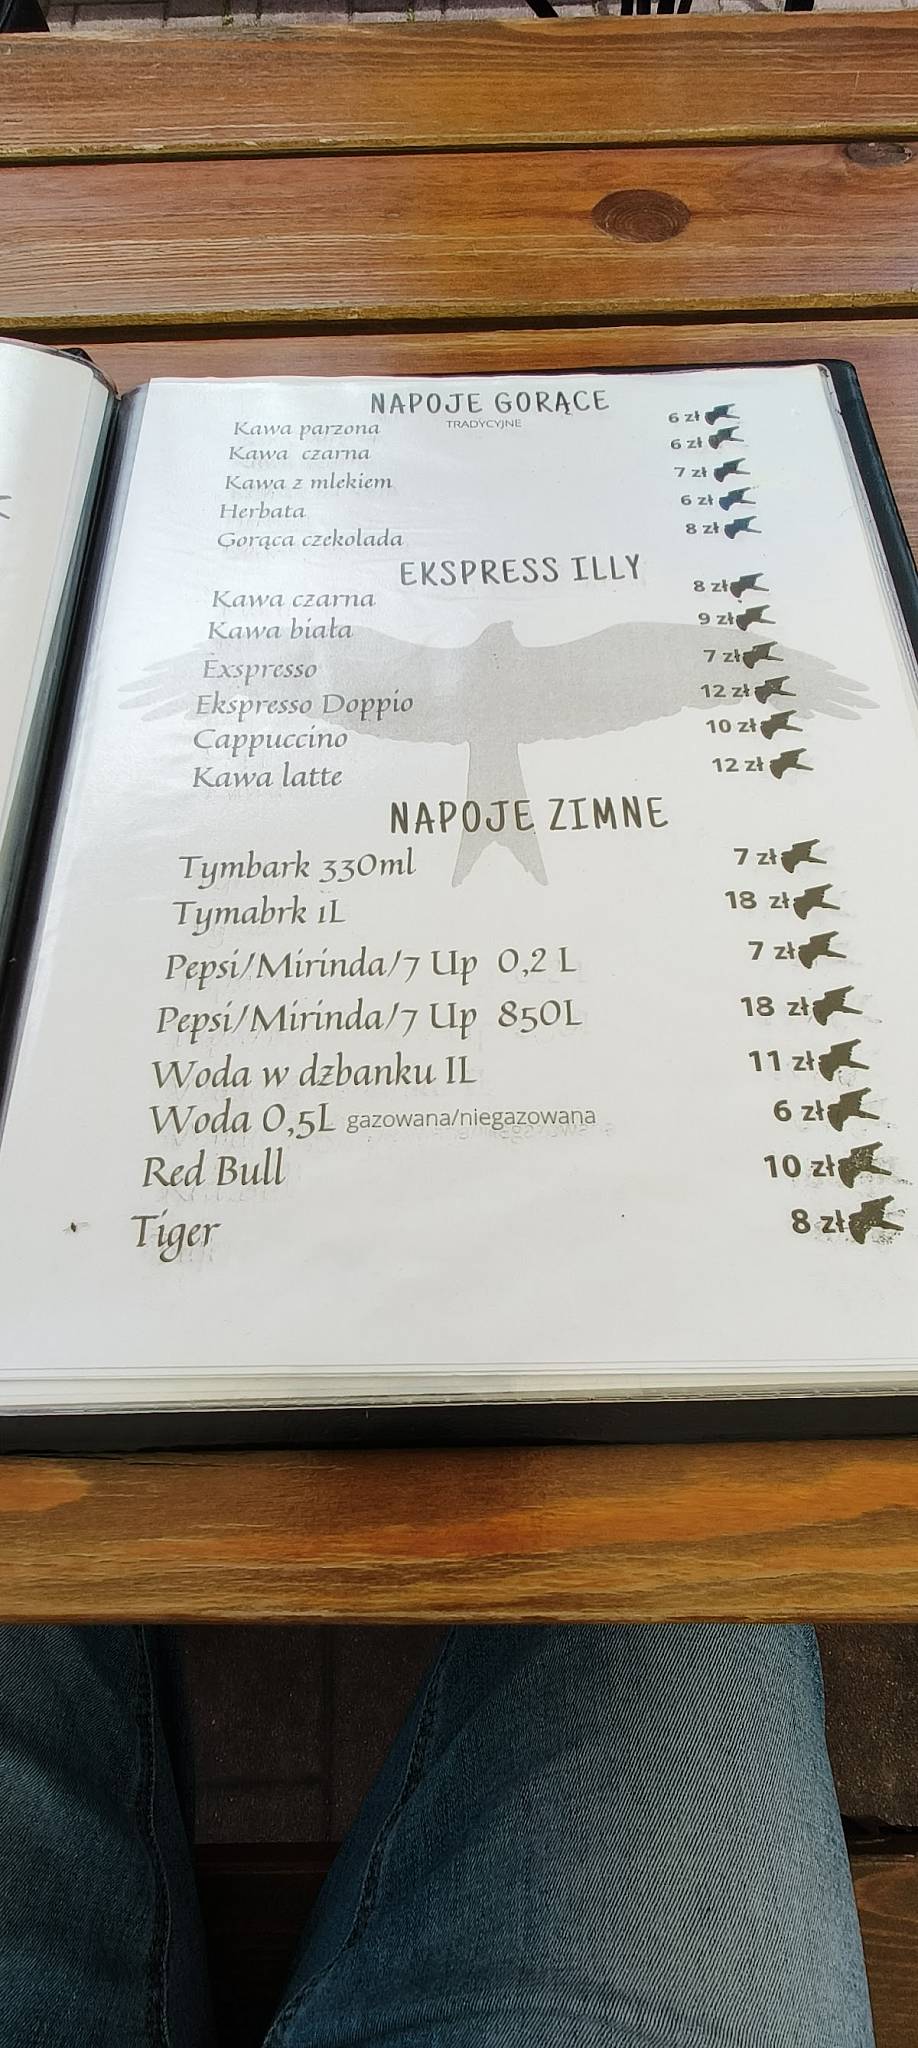 NAPOJE GORĄCE
TRADYCYJNE
Kawa parzona 6 zł
Kawa czarna 6 zł
Kawa z mlekiem 7 zł
Herbata 6 zł
Gorąca czekolada 8 zł
EKSPRESS ILLY
Kawa czarna 8 zł
Kawa biała 9 zł
Exspresso 7 zł
Ekspresso Doppio 12 zł
Cappuccino 10 zł
Kawa latte 12 zł
NAPOJE ZIMNE
Tymbark 330ml 7 zł
Tymabrk 1L 18 zł
Pepsi/Mirinda/7 Up 0,2 L 7 zł
Pepsi/Mirinda/7 Up 850L 18 zł
Woda w dzbanku 1L 11 zł
Woda 0,5L gazowana/niegazowana 6 zł
Red Bull 10 zł
Tiger 8 zł